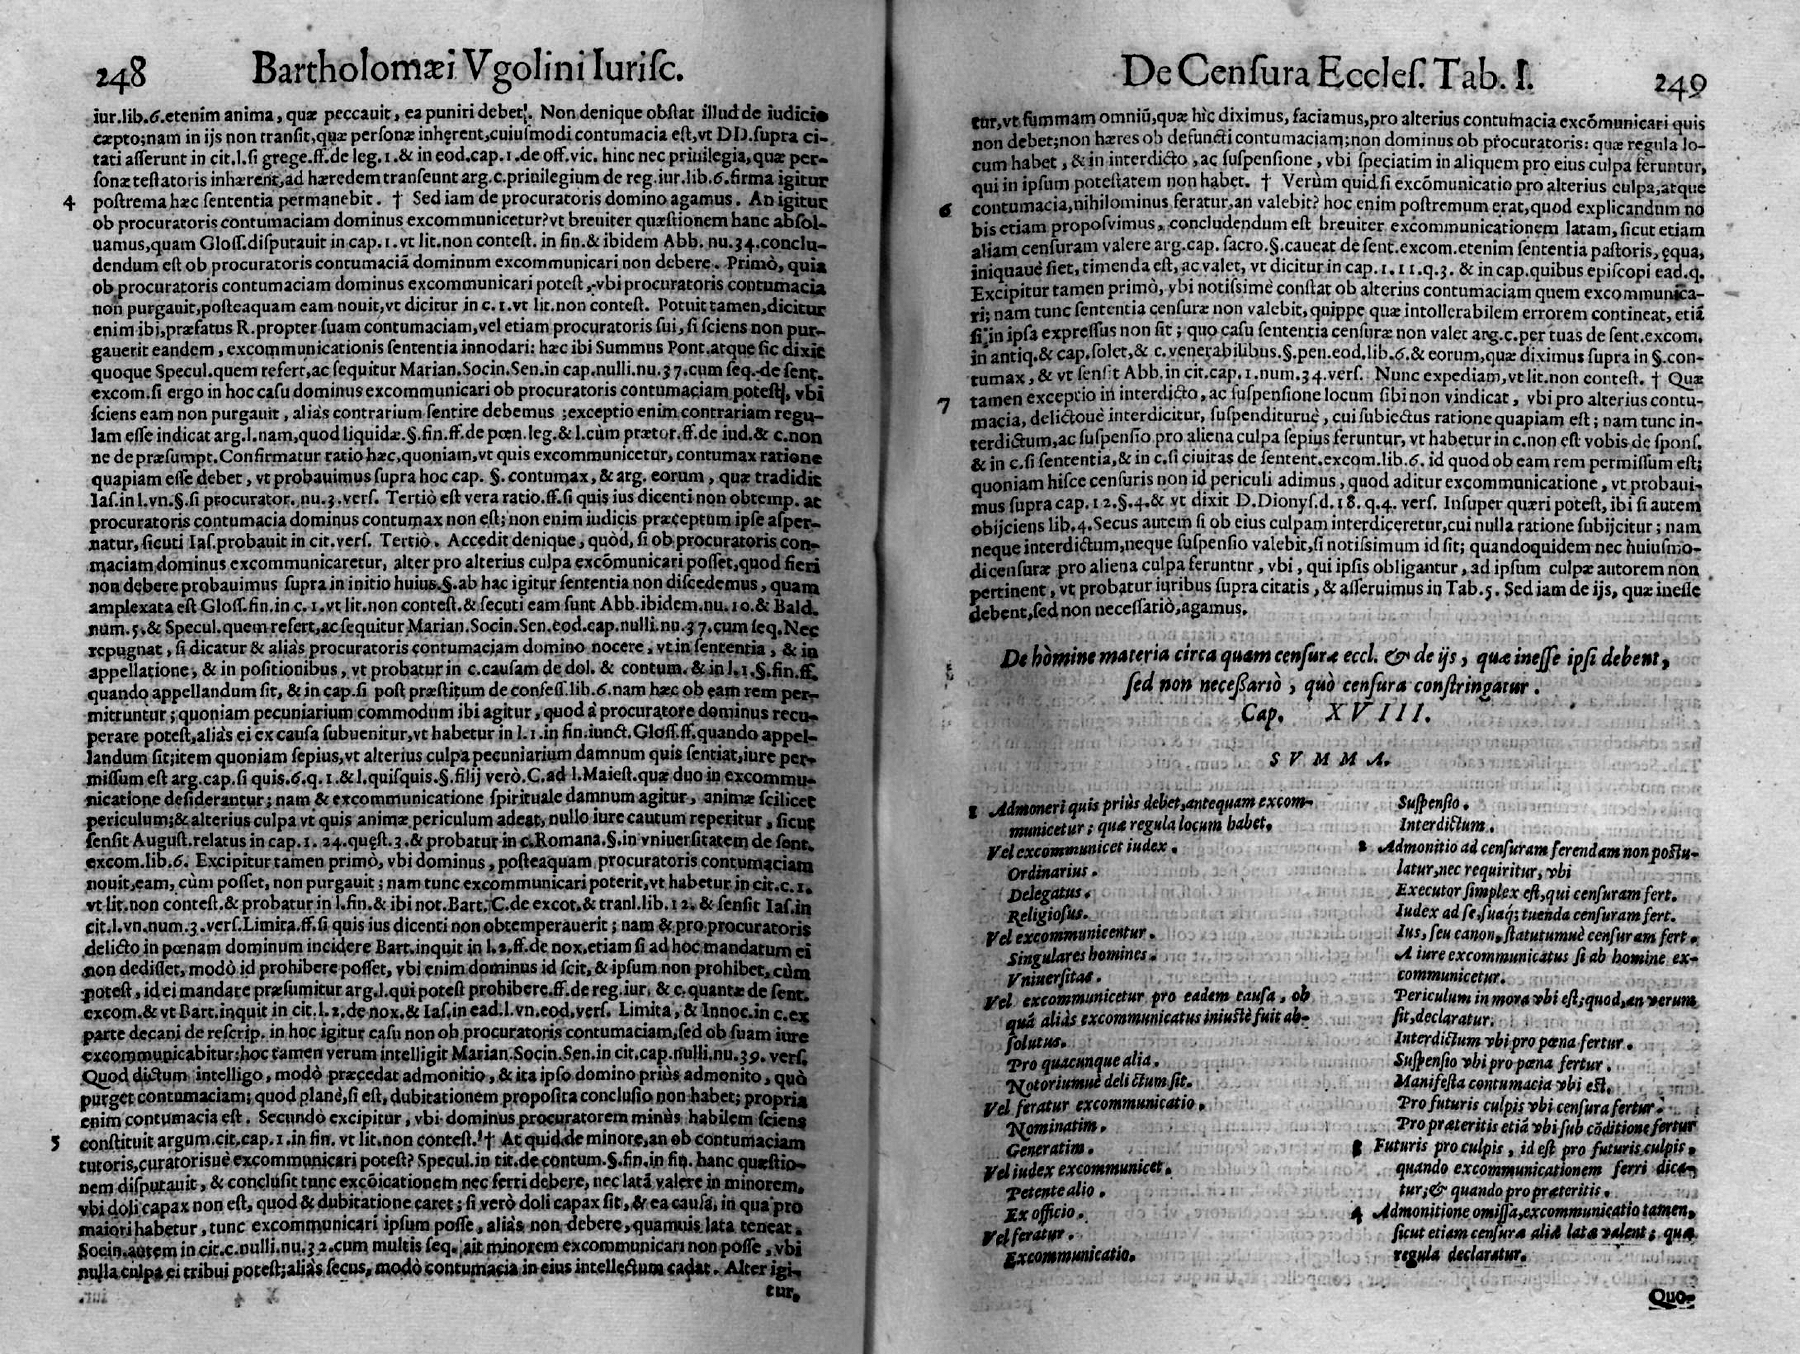 248 Bartholomæi Vgolini Iurisc.
iur.lib.6.etenim anima, quæ peccauit, ea puniri debet. Non denique obstat illud de iudicio
cæpto;nam in ijs non transit,quæ personæ inhęrent,cuiusmodi contumacia est,vt DD.supra ci-
tati asserunt in cit.l.si grege.ff.de leg.1.& in eod.cap.1.de off.vic. hinc nec priuilegia,quæ per-
sonæ testatoris inhærent,ad hæredem transeunt arg.c.priuilegium de reg.iur.lib.6.firma igitur
4 postrema hæc sententia permanebit. † Sed iam de procuratoris domino agamus. An igitur
ob procuratoris contumaciam dominus excommunicetur?vt breuiter quæstionem hanc absol-
uamus,quam Gloss.disputauit in cap.1.vt lit.non contest. in fin.& ibidem Abb. nu.34.conclu-
dendum est ob procuratoris contumaciã dominum excommunicari non debere. Primò, quia
ob procuratoris contumaciam dominus excommunicari potest, vbi procuratoris contumacia
non purgauit,posteaquam eam nouit,vt dicitur in c.1.vt lit.non contest. Potuit tamen,dicitur
enim ibi,præfatus R.propter suam contumaciam,vel etiam procuratoris sui, si sciens non pur-
gauerit eandem, excommunicationis sententia innodari: hæc ibi Summus Pont.atque sic dixit
quoque Specul.quem refert,ac sequitur Marian.Socin.Sen.in cap.nulli.nu.37.cum seq.de sent.
excom.si ergo in hoc casu dominus excommunicari ob procuratoris contumaciam potest, vbi
sciens eam non purgauit, aliàs contrarium sentire debemus ;exceptio enim contrariam regu-
lam esse indicat arg.l.nam,quod liquidæ.§.fin.ff.de pœn.leg.& l.cùm prætor.ff.de iud.& c.non
ne de præsumpt.Confirmatur ratio hæc,quoniam,vt quis excommunicetur, contumax ratione
quapiam esse debet, vt probauimus supra hoc cap. §. contumax, & arg. eorum, quæ tradidit
Ias.in l.vn.§.si procurator. nu.3.vers. Tertiò est vera ratio.ff.si quis ius dicenti non obtemp. at
procuratoris contumacia dominus contumax non est; non enim iudicis præceptum ipse asper-
natur, sicuti Ias.probauit in cit.vers. Tertiò. Accedit denique, quòd, si ob procuratoris con-
maciam dominus excommunicaretur, alter pro alterius culpa excõmunicari posset,quod fieri
non debere probauimus supra in initio huius.§.ab hac igitur sententia non discedemus, quam
amplexata est Gloss.fin.in c.1.vt lit.non contest.& secuti eam sunt Abb.ibidem.nu.10.& Bald.
num.5.& Specul.quem refert,ac sequitur Marian.Socin.Sen.eod.cap.nulli.nu.37.cum seq.Nec
repugnat, si dicatur & aliàs procuratoris contumaciam domino nocere, vt in sententia, & in
appellatione, & in positionibus, vt probatur in c.causam de dol. & contum. & in l.1.§.fin.ff.
quando appellandum sit, & in cap.si post præstitum de confess.lib.6.nam hæc ob eam rem per-
mittuntur; quoniam pecuniarium commodum ibi agitur, quod à procuratore dominus recu-
perare potest,aliàs ei ex causa subuenitur,vt habetur in l.1.in fin.iunct.Gloss.ff.quando appel-
landum sit;item quoniam sępius,vt alterius culpa pecuniarium damnum quis sentiat,iure per-
missum est arg.cap.si quis.6.q.1.& l.quisquis.§.filij verò.C.ad l.Maiest.quæ duo in excommu-
nicatione desiderantur; nam & excommunicatione spirituale damnum agitur, animæ scilicet
periculum;& alterius culpa vt quis animæ periculum adeat, nullo iure cautum reperitur, sicut
sensit August.relatus in cap.1. 24.quęst.3.& probatur in c.Romana.§.in vniuersitatem de sent.
excom.lib.6. Excipitur tamen primò, vbi dominus, posteaquam procuratoris contumaciam
nouit,eam, cùm posset, non purgauit; nam tunc excommunicari poterit,vt habetur in cit.c.1.
vt lit.non contest.& probatur in l.fin.& ibi not.Bart.C.de excot.& tranl.lib.12.& sensit Ias.in
cit.l.vn.num.3.vers.Limita.ff.si quis ius dicenti non obtemperauerit; nam & pro procuratoris
delicto in pœnam dominum incidere Bart.inquit in l.2.ff.de nox.etiam si ad hoc mandatum ei
non dedisset, modò id prohibere posset, vbi enim dominus id scit, & ipsum non prohibet, cùm
potest, id ei mandare præsumitur arg.l.qui potest prohibere.ff.de reg.iur. & c.quantæ de sent.
excom.& vt Bart.inquit in cit.l.2.de nox.& Ias.in ead.l.vn.eod.vers. Limita, & Innoc.in c.ex
parte decani de rescrip. in hoc igitur casu non ob procuratoris contumaciam,sed ob suam iure
excommunicabitur:hoc tamen verum intelligit Marian.Socin.Sen.in cit.cap.nulli.nu.39.vers.
Quod dictum intelligo, modò præcedat admonitio, & ita ipso domino priùs admonito, quò
purget contumaciam; quod planè,si est, dubitationem proposita conclusio non habet; propria
enim contumacia est. Secundò excipitur, vbi dominus procuratorem minùs habilem sciens
5 constituit argum.cit.cap.1.in fin. vt lit.non contest. † At quid de minore,an ob contumaciam
tutoris,curatorisuè excommunicari potest? Specul.in tit.de contum.§.fin.in fin. hanc quæstio-
nem disputauit, & conclusit tunc excõicationem nec ferri debere, nec latã valere in minorem,
vbi doli capax non est, quod & dubitatione caret; si verò doli capax sit, & ea causa, in qua pro
maiori habetur, tunc excommunicari ipsum posse, aliàs non debere, quamuis lata teneat.
Socin.autem in cit.c.nulli.nu.32.cum multis seq. ait minorem excommunicari non posse, vbi
nulla culpa ei tribui potest;aliàs secus, modò contumacia in eius intellectum cadat. Alter igi-
tur,
De Censura Eccles. Tab. I. 249
tur,vt summam omniũ,quæ hìc diximus, faciamus,pro alterius contumacia excõmunicari quis
non debet;non hæres ob defuncti contumaciam;non dominus ob procuratoris: quæ regula lo-
cum habet, & in interdicto, ac suspensione, vbi speciatim in aliquem pro eius culpa feruntur,
qui in ipsum potestatem non habet. † Verùm quid,si excõmunicatio pro alterius culpa,atque
6 contumacia,nihilominus feratur,an valebit? hoc enim postremum erat,quod explicandum no
bis etiam proposvimus, concludendum est breuiter excommunicationem latam, sicut etiam
aliam censuram valere arg.cap. sacro.§.caueat de sent.excom.etenim sententia pastoris, ęqua,
iniquauè siet, timenda est, ac valet, vt dicitur in cap.1.11.q.3. & in cap.quibus episcopi ead.q.
Excipitur tamen primò, vbi notissimè constat ob alterius contumaciam quem excommunica-
ri; nam tunc sententia censuræ non valebit, quippe quæ intollerabilem errorem contineat, etiã
si in ipsa expressus non sit; quo casu sententia censuræ non valet arg.c.per tuas de sent.excom.
in antiq.& cap.solet,& c.venerabilibus.§.pen.eod.lib.6.& eorum,quæ diximus supra in §.con-
tumax, & vt sensit Abb.in cit.cap.1.num.34.vers. Nunc expediam,vt lit.non contest. † Quæ
7 tamen exceptio in interdicto, ac suspensione locum sibi non vindicat, vbi pro alterius contu-
macia, delictouè interdicitur, suspenditurué, cui subiectus ratione quapiam est; nam tunc in-
terdictum,ac suspensio pro aliena culpa sępius feruntur, vt habetur in c.non est vobis de spons.
& in c.si sententia,& in c.si ciuitas de sentent.excom.lib.6. id quod ob eam rem permissum est;
quoniam hisce censuris non id periculi adimus, quod aditur excommunicatione, vt probaui-
mus supra cap.12.§.4.& vt dixit D.Dionys.d.18.q.4. vers. Insuper quæri potest, ibi si autem
obijciens lib.4.Secus autem si ob eius culpam interdiceretur,cui nulla ratione subijcitur; nam
neque interdictum,neque suspensio valebit,si notissimum id sit; quandoquidem nec huiusmo-
di censuræ pro aliena culpa feruntur, vbi, qui ipsis obligantur, ad ipsum culpæ autorem non
pertinent, vt probatur iuribus supra citatis, & asseruimus in Tab.5. Sed iam de ijs, quæ inesse
debent,sed non necessariò,agamus.
De hòmine materia circa quam censuræ eccl. & de ijs, quæ inesse ipsi debent,
sed non necessariò, quò censura constringatur.
Cap. XVIII.
SVMMA.
1 Admoneri quis priùs debet,antequam excom-
municetur; quæ regula locum habet.
Vel excommunicet iudex.
Ordinarius.
Delegatus.
Religiosus.
Vel excommunicentur.
Singulares homines.
Vniuersitas.
Vel excommunicetur pro eadem causa, ob
quã aliàs excommunicatus iniustè fuit ab-
solutus.
Pro quacunque alia.
Notoriumuè delictum sit.
Vel feratur excommunicatio.
Nominatim.
Generatim.
Vel iudex excommunicet.
Petente alio.
Ex officio.
Vel feratur.
Excommunicatio.
Suspensio.
Interdictum.
2 Admonitio ad censuram ferendam non postu-
latur,nec requiritur, vbi
Executor simplex est,qui censuram fert.
Iudex ad se,suaq; tuenda censuram fert.
Ius, seu canon,statutumuè censuram fert.
A iure excommunicatus si ab homine ex-
communicetur.
Periculum in mora vbi est;quod,an verum
sit,declaratur.
Interdictum vbi pro pœna fertur.
Suspensio vbi pro pœna fertur.
Manifesta contumacia vbi est.
Pro futuris culpis vbi censura fertur.
Pro præteritis etiã vbi sub cõditione fertur
3 Futuris pro culpis, id est pro futuris culpis,
quando excommunicationem ferri dica-
tur;& quando pro præteritis.
4 Admonitione omissa,excommunicatio tamen,
sicut etiam censura alia lata valent; quæ
regula declaratur.
Quo-